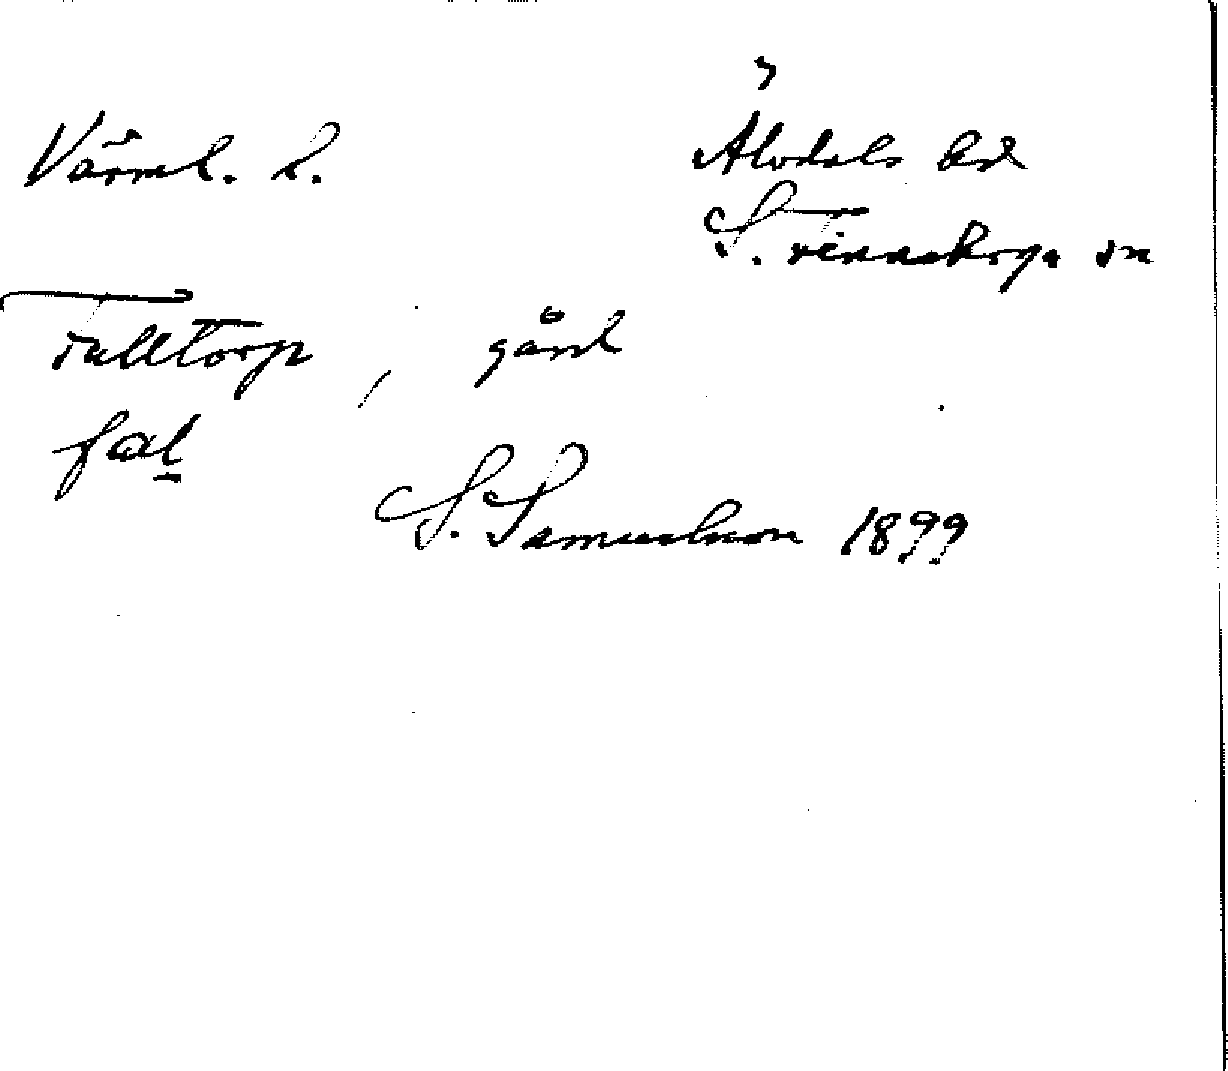 Värml. l.
Älvdals hd
S. Finnskoga sn
Falltorp, gård
fal
S. Samuelsson 1899